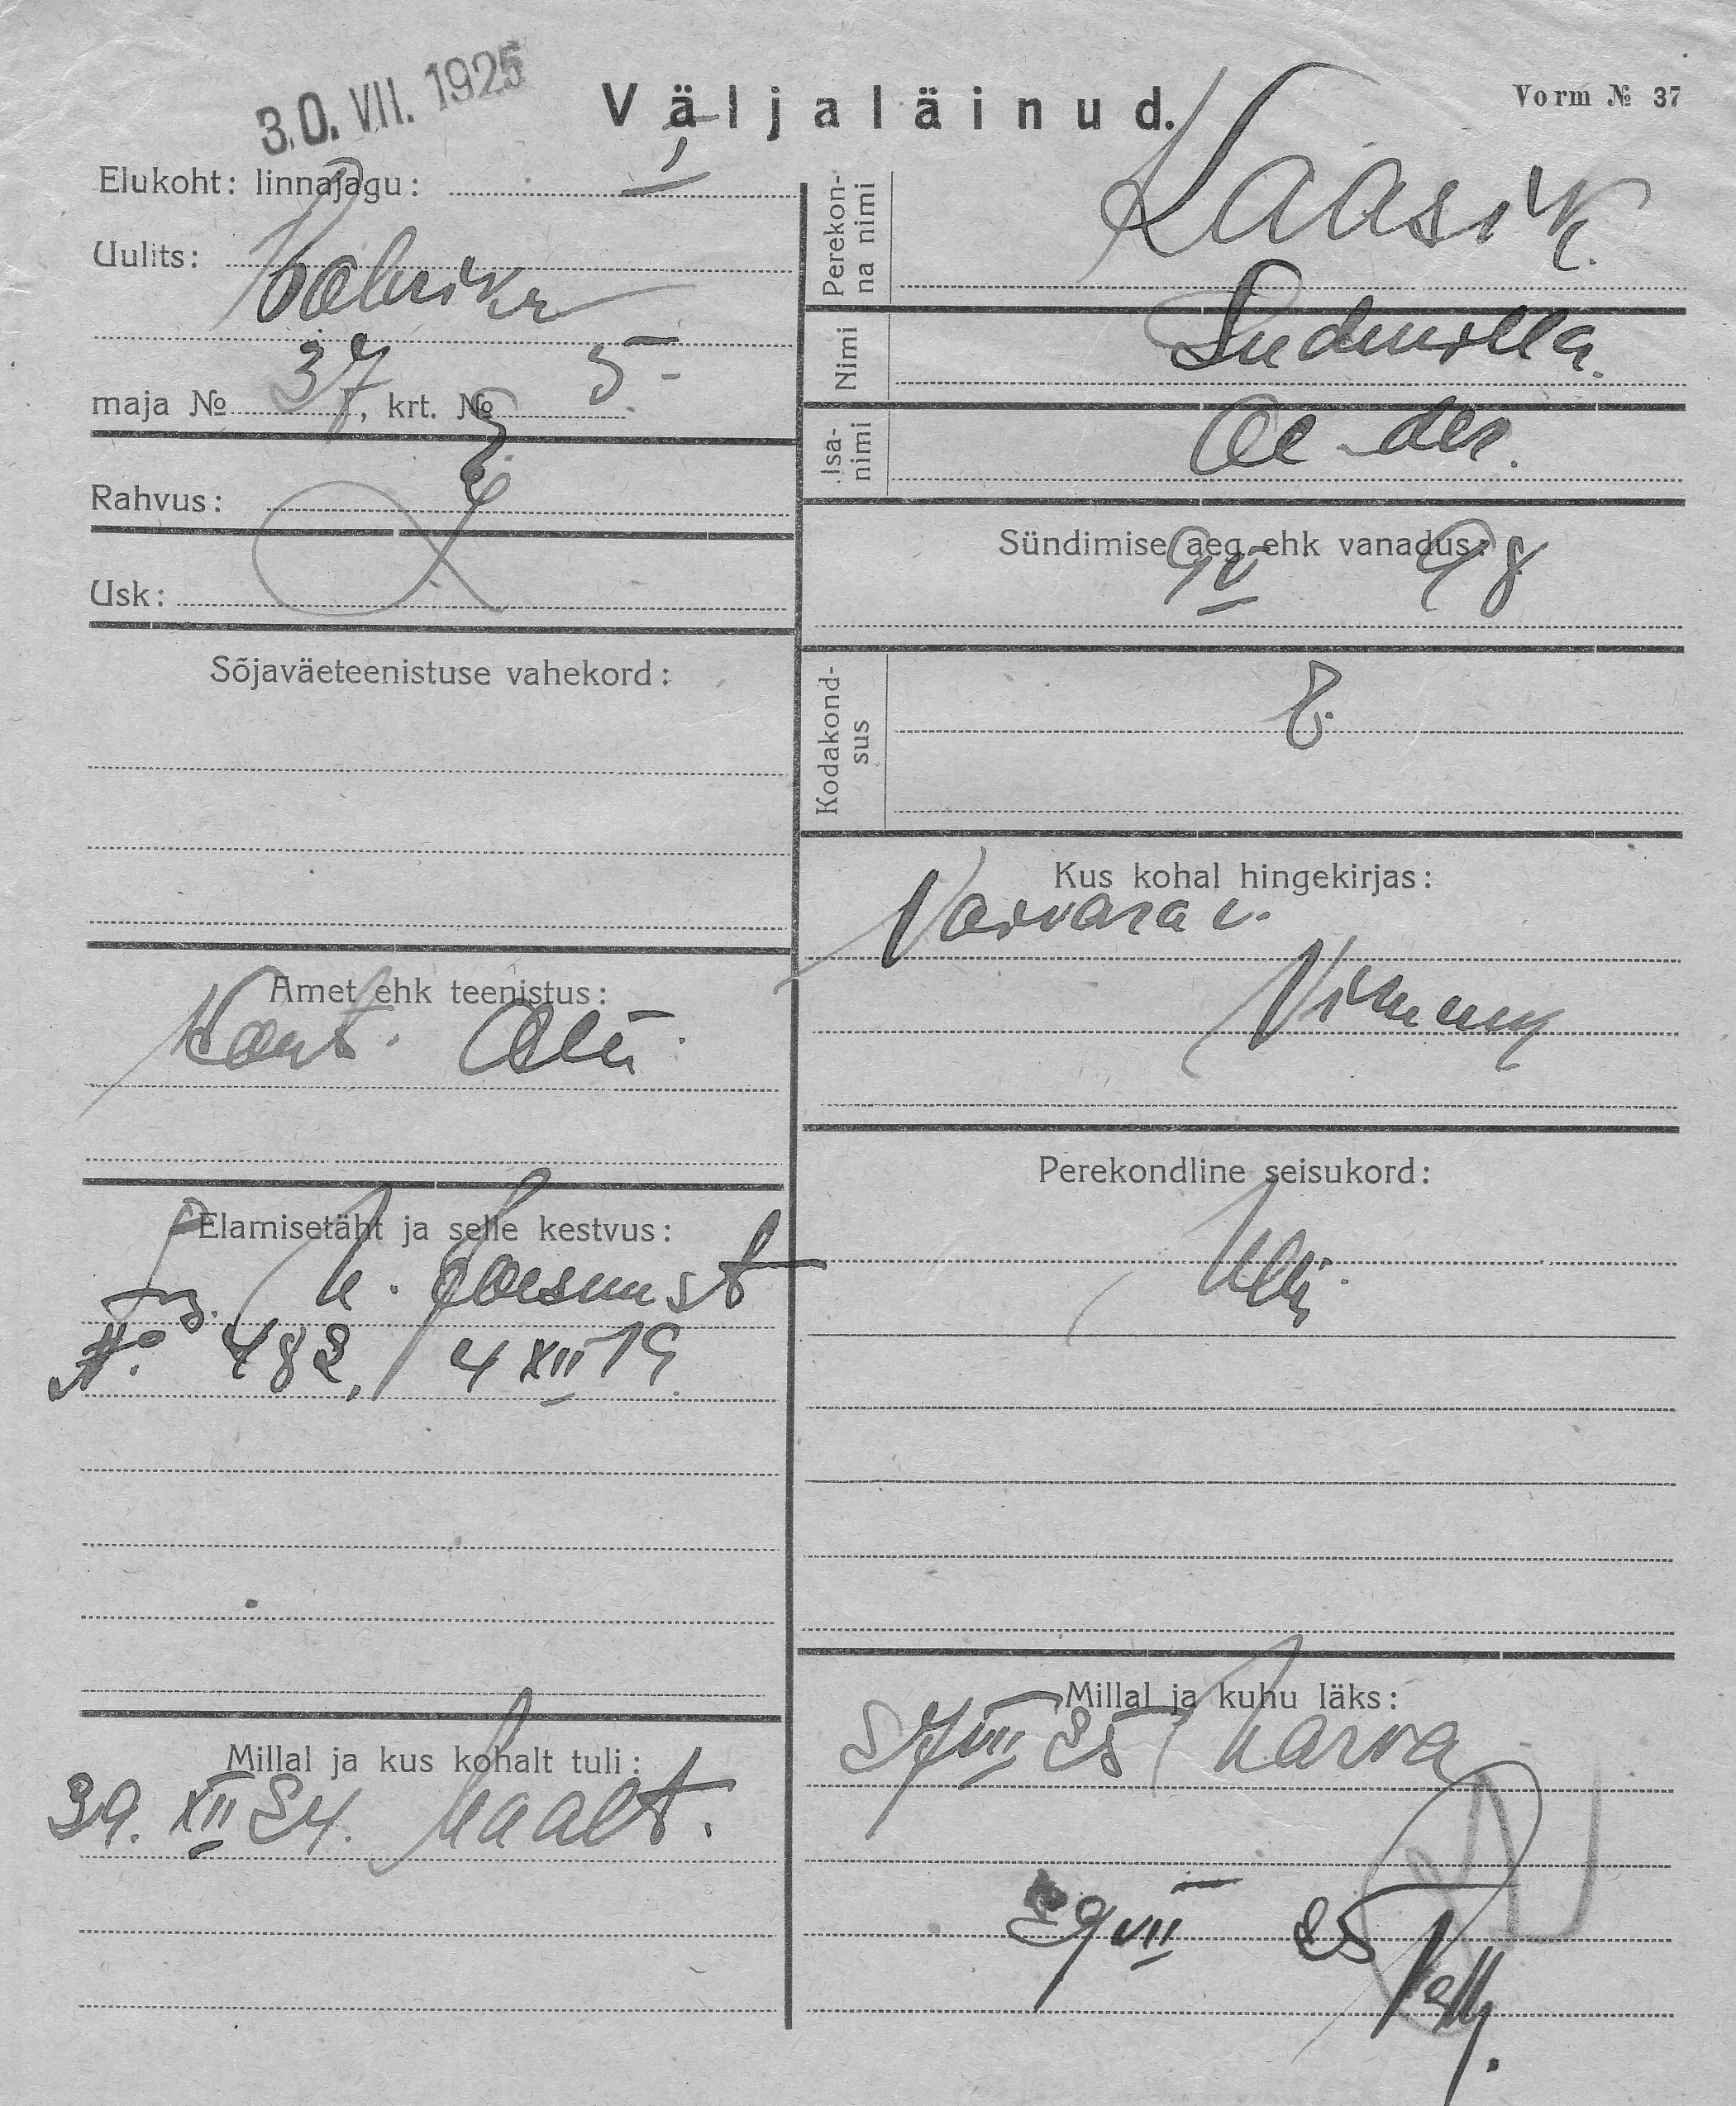 30. VII. 1925
Väljaläinud.
Vorm № 37
Elukoht: linnajagu: I
Uulits: Vabriku
maja № 37, krt. № 5
Rahvus:
Usk:
Sõjaväeteenistuse vahekord:
Amet ehk teenistus:
Kont.
Elamisetäht ja selle kestvus:
No 482, 4 XII 19.
Millal ja kus kohalt tuli:
29. XII 24. Maalt.
Perekonna nimi
Kaasik.
Nimi
Ludmilla.
Isanimi
Sündimise aeg ehk vanadus:
9 V 98
Kodakondsus
E.
Kus kohal hingekirjas:
Vaivara v.
Virumm
Perekondline seisukord:
Millal ja kuhu läks:
27 VII 25 Narva
29 VII 25